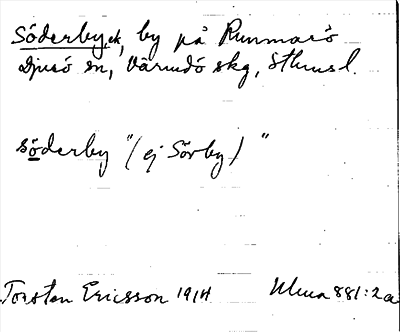 Söderby, ck, by på Runmarö
Djurö sn, Värmdö skg, Sthms l.
söderby "(ej Sörby) "
Torsten Ericsson 1914 Ulma 881:2a